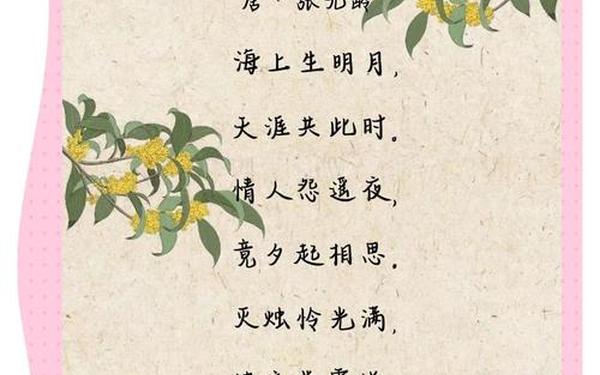 唐·张九龄
海上生明月，
天涯共此时。
情人怨遥夜，
竟夕起相思。
灭烛怜光满，